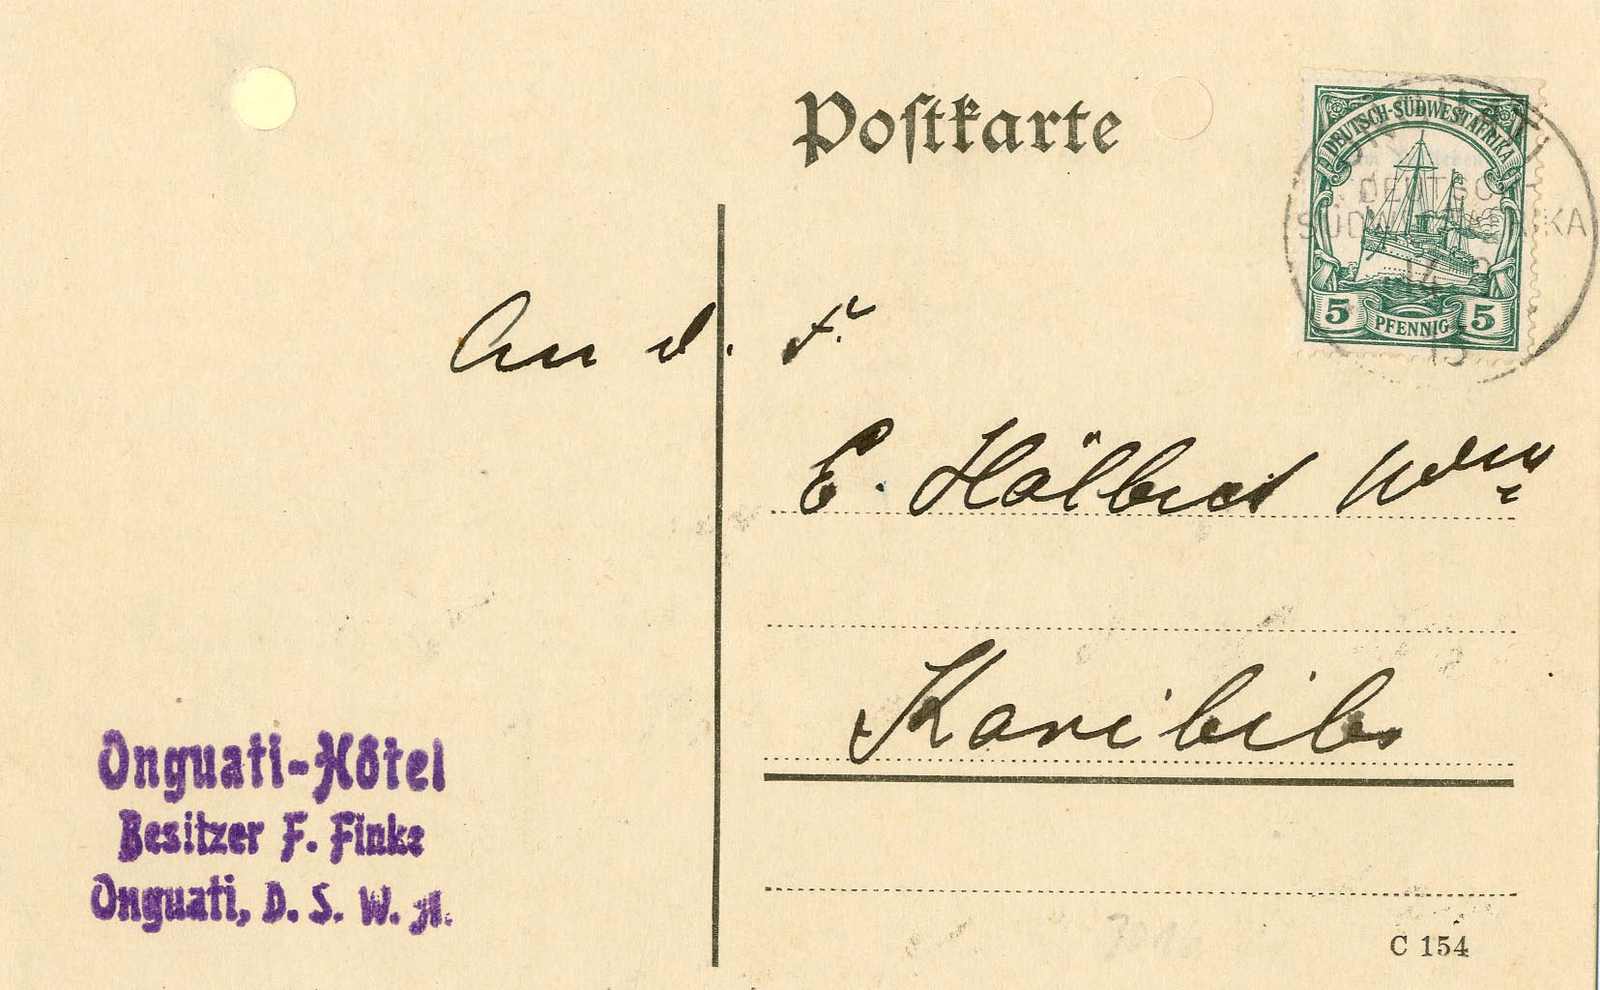 Postkarte
DEUTSCH-SÜDWESTAFRIKA
5 PFENNIG 5
DEUTSCH
SÜDWESTAFRIKA
An d. F.
E. Hälbich Wwe
Karibib
Onguati-Hôtel
Besitzer F. Finke
Onguati, D. S. W. A.
C 154